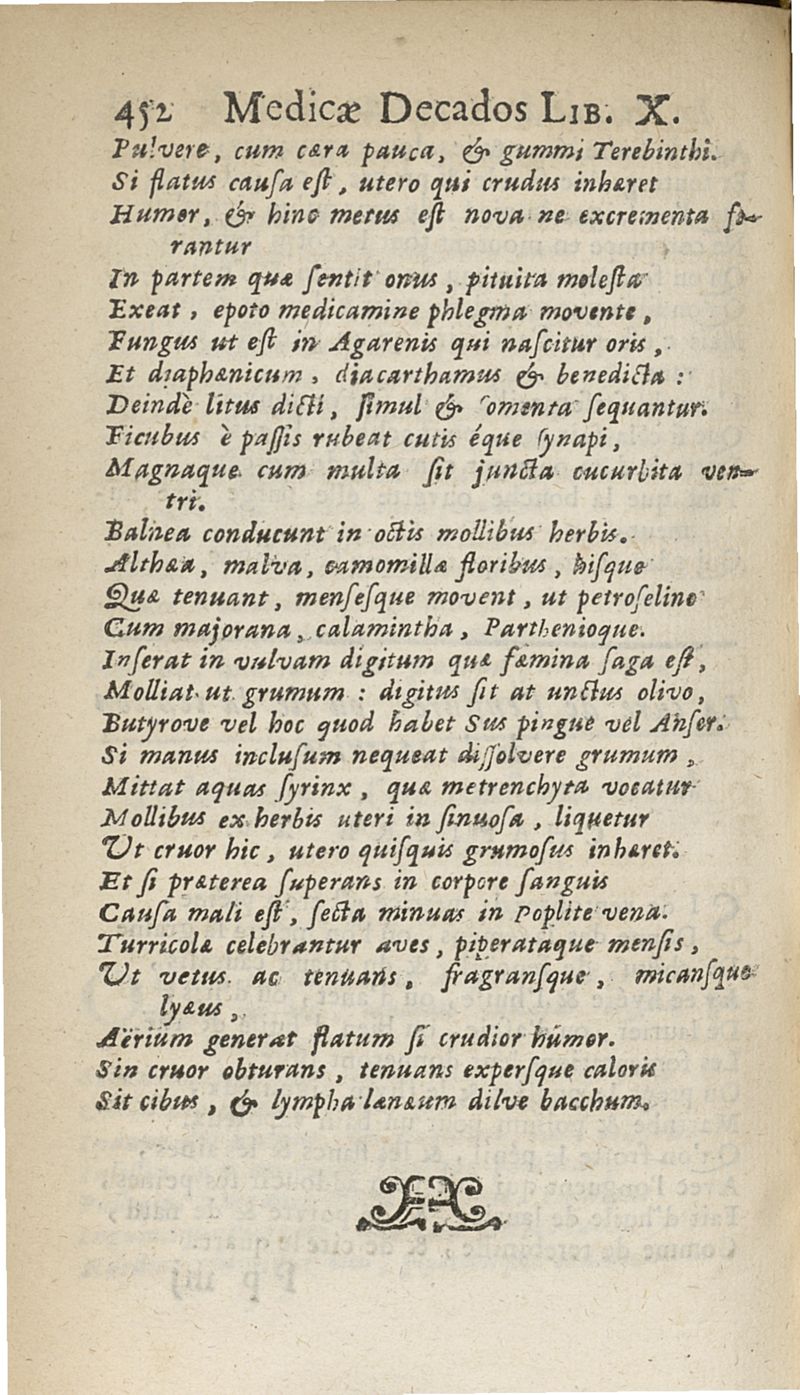 452 Medicæ Decados LIB. X.
Pulvere, cum cæra pauca, & gummi Terebinthi.
Si flatus causa est, utero qui crudus inhæret
Humor, & hinc metus est nova ne excrementa fe-
rantur
In partem quæ sentit onus, pituita molesta
Exeat, epoto medicamine phlegma movente,
Fungus ut est in Agarenis qui nascitur oris,
Et diaphænicum, diacarthamus & benedicta:
Deindè litus dicti, simul & fomenta sequantur.
Ficubus è passis rubeat cutis éque synapi,
Magnaque cum multa sit juncta cucurbita ven-
tri.
Balnea conducunt in octis mollibus herbis.
Althæa, malva, camomillæ floribus, hisque
Quæ tenuant, mensesque movent, ut petroselino
Cum majorana, calamintha, Parthenioque.
Inserat in vulvam digitum quæ fæmina saga est,
Molliat ut grumum: digitus sit at unctus olivo,
Butyrove vel hoc quod habet Sus pingue vel Anser.
Si manus inclusum nequeat dissolvere grumum,
Mittat aquas syrinx, quæ metrenchyta vocatur
Mollibus ex herbis uteri in sinuosa, liquetur
Ut cruor hic, utero quisquis grumosus inhæret.
Et si præterea superans in corpore sanguis
Causa mali est, secta minuas in Poplite vena.
Turricolæ celebrantur aves, piperataque mensis,
Ut vetus ac tenuans, fragransque, micansque
lyæus,
Aërium generat flatum si crudior húmor.
Sin cruor obturans, tenuans expersque caloris
Sit cibus, & lympha lænæum dilue bacchum.